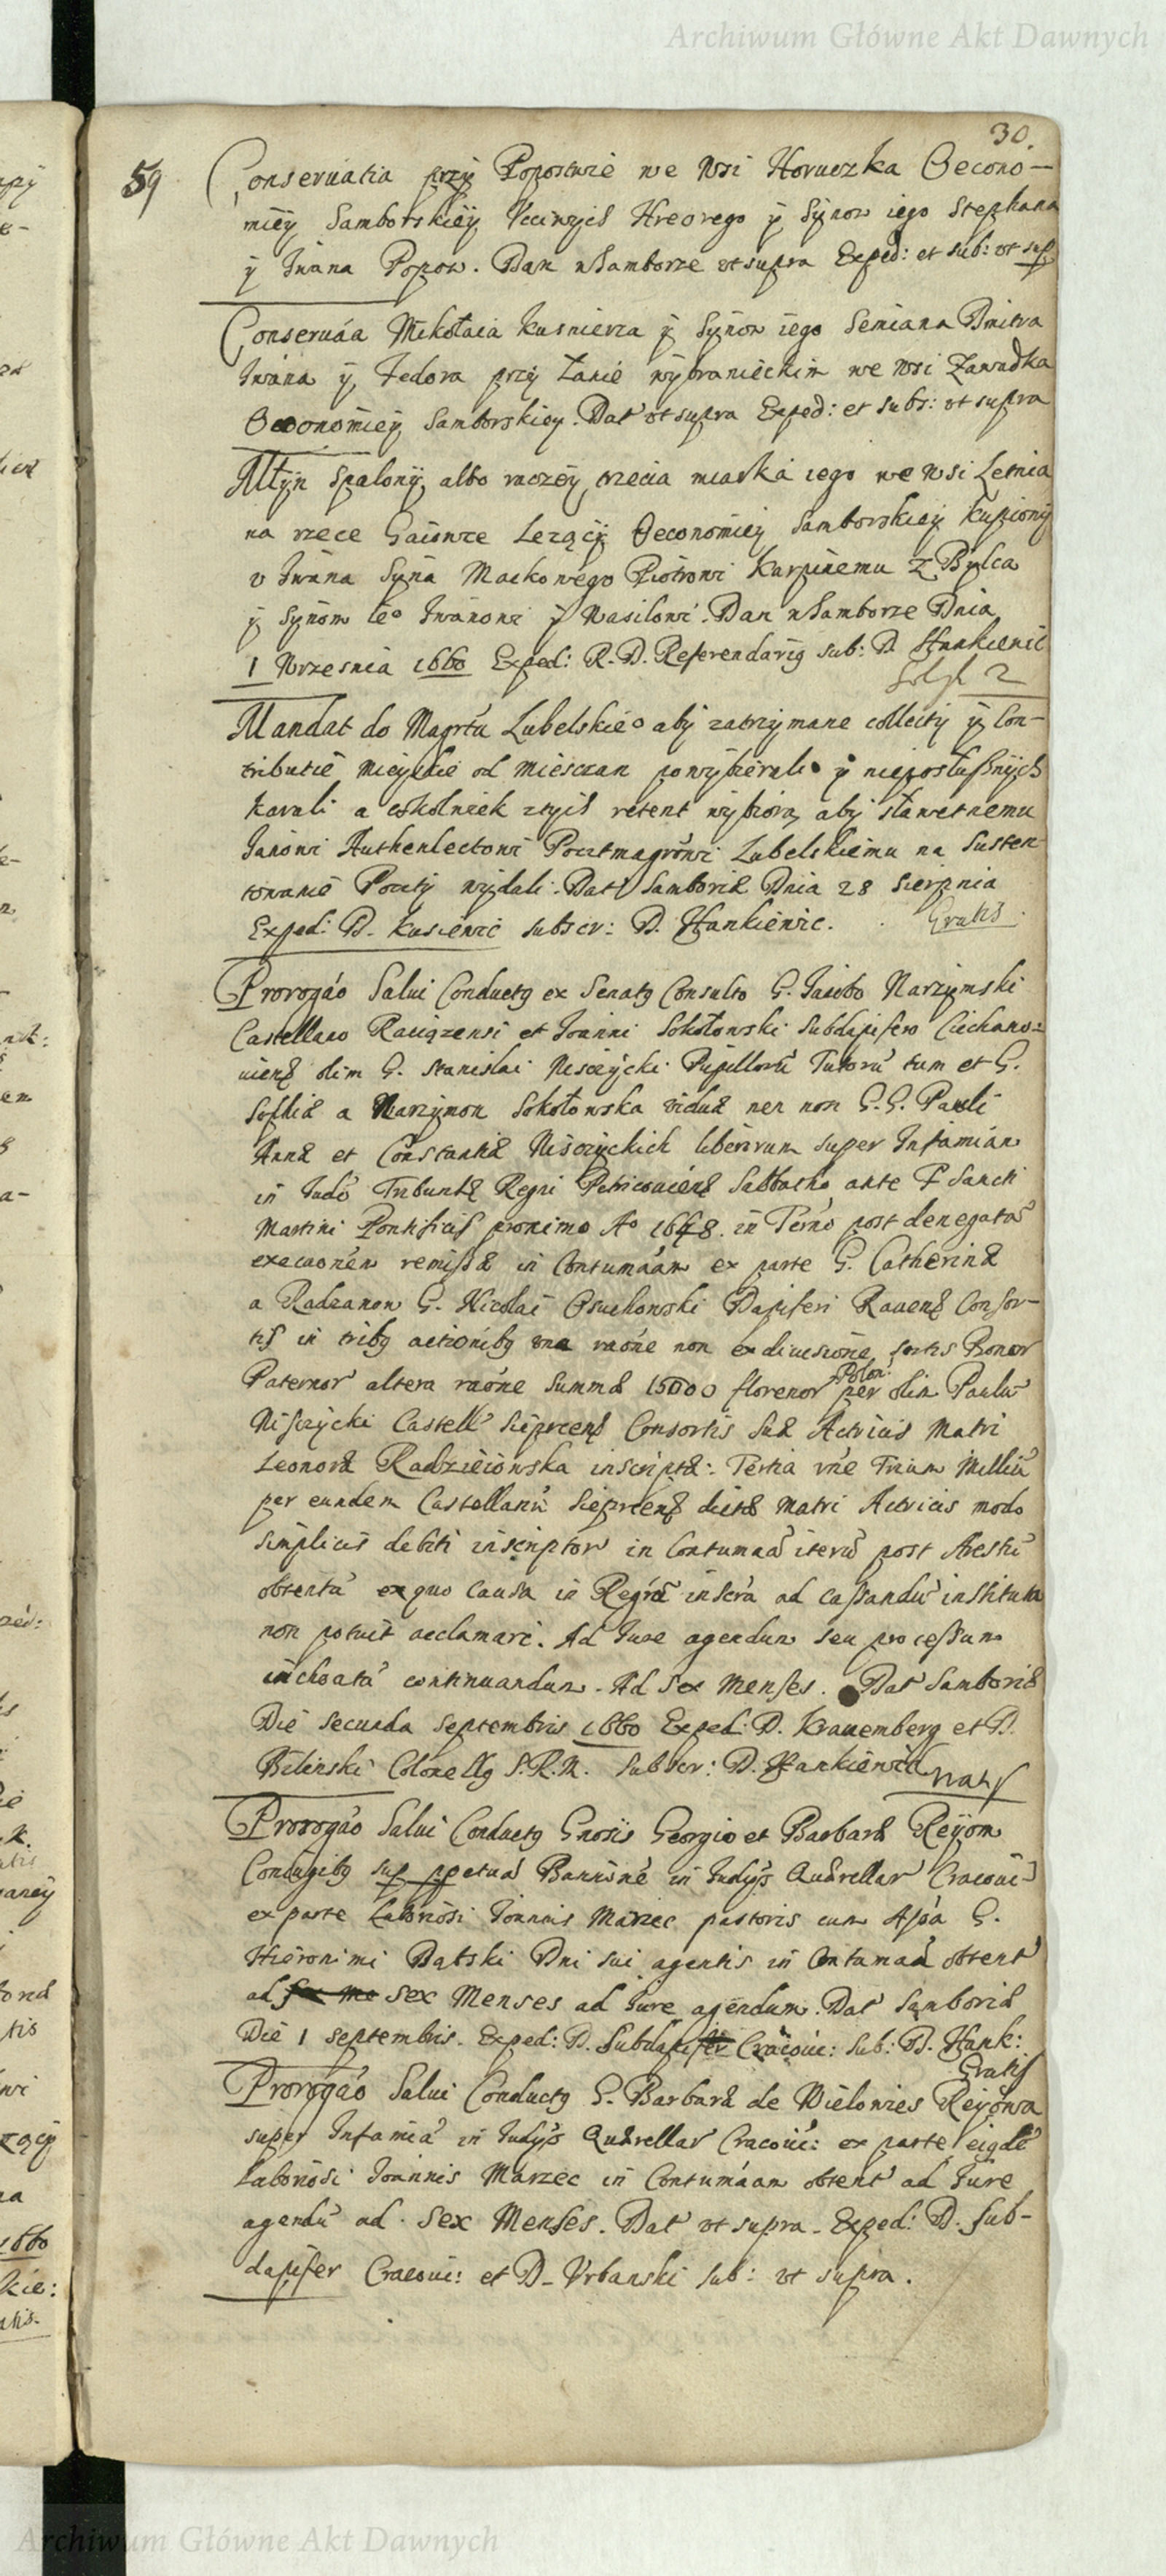 Archiwum Główne Akt Dawnych
30.
59
Conseruatia przy Popostwie we Wsi Horuczka Oecono-
miey Samborskiey Vcciwych Hreorego y Synow iego Stephana
y Iwana Popow. Dan w Samborze vt supra Exped: et sub: vt sup
Conseruáa Mikołaia Kusnierza y Synow iego Semiana Dmitra
Iwana y Fedora przy Łanie wybranieckim we Wsi Zawadka
Oeconomiey Samborskiey. Dat vt supra Exped: et subs: vt supra
Młyn spalony albo raczey trzecia miarka iego we Wsi Letnia
na rzece Gaionce Lezący Oeconomiey Samborskiey kupiony
v Iwana Syna Maskowego Piotrowi Karpinemu z Bylca
y Synom ieo Iwanowi y Wasilowi. Dan w Samborze Dnia
1 Wrzesnia 1660 Exped: R. D. Referendarig sub: D. Hankiewic
2
Mandat do Magrtu Lubelskieo aby zatrzymane collecty y Con-
tributie mieyskie od miesczan powybierali y nieposłusznych
karali a cokolwiek z tych retent wybiorą aby sławetnemu
Janowi Authenlectowi Pocztmagrowi Lubelskiemu na susten
towanie Poczty wydali. Dat Samboriæ Dnia 28 Sierpnia
Exped: D. Kusiewic subscr: D. Hankiewic. Gratis
Prorogáo Salui Conductg ex Senatg Consulto G. Iacobo Narzymski
Castellano Raciązensi et Joanni Sokołowski Subdapifero Ciechano-
uiens olim G. Stanislai Nisczycki Pupilloru Tutoru tum et G.
Sophiæ a Narzymon Sokołowska viduæ nec non G. G. Pauli
Annæ et Constantiæ Nisczyckich liberorum super Infamiam
in Iudo Tribunls Regni Petricouiens Sabbatho ante F Sancti
Martini Pontificis proximo Ao 1648. in Terno post denegata
execuonem remissæ in Contumáam ex parte G. Catherinæ
a Radzanow G. Nicolai Osuchowski Dapiferi Rauens Consor-
tis in tribg actionibg vna raóne non exdiuisióne sortis Bonor
Paternor altera raóne summæ 15000 florenor Polon: per olim Paulu
Nisczycki Castell Sieprcens Consortis suæ Actricis Matri
Leonoræ Radzieiowska inscriptæ: Tertia rne Trium Milliu
per eundem Castellanu Sieprcens dictæ Matri Actricis modo
simplicis debiti inscriptor in Contumaá iteru post Arestu
obtenta ex quo Causa in Regra inscra ad cassandu instituta
non potuit acclamari. Ad Iure agendum seu processum
inchoata continuandum. Ad Sex Menses. Dat Samboriæ
Die secunda Septembris 1660 Exped: D. Krauemberg et D.
Bilinski Colonellg S. R. M. Subscr: D. Hankiewic
Prorogáo Salui Conductg Gnosis Georgio et Barbaræ Reyom
Coniugibg sup ppetua Bannine in Iudys Quærellar Cracoui:
ex parte Laboriosi Joannis Marzec pastoris cum Assa G.
Hieronimi Bąbski Dni sui agentis in Contumaá obtent
ad sex me Sex Menses ad Iure agendum. Dat Samboriæ
Die 1 Septembris. Exped: D. Subdapifer Cracoui: Sub: D. Hank:
Gratis
Prorogáo Salui Conductg G. Barbaræ de Wielowies Reyowa
super Infamia in Iudys Quærellar Cracoui: ex parte eigde
Laboriosi Joannis Marzec in Contumáam obtent ad Iure
agendu ad Sex Menses. Dat vt supra. Exped: D. Sub-
dapifer Cracoui: et D. Vrbanski Sub: vt supra.
Archiwum Główne Akt Dawnych